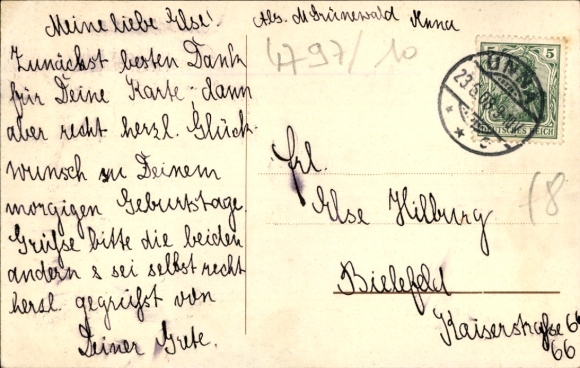 Meine liebe Else!
Zunächst besten Dank
für Deine Karte, dann
aber recht herzl. Glück-
wunsch zu Deinem
morgigen Geburtstage.
Grüße bitte die beiden
andern & sei selbst recht
herzl. gegrüßt von
Deiner Grete.
Abs. M. Grünewald Unna
4797/10
5 5
UNNA
23.6.
DEUTSCHES REICH
Frl.
Else Hilburg
Bielefeld
Kaiserstraße 66
66